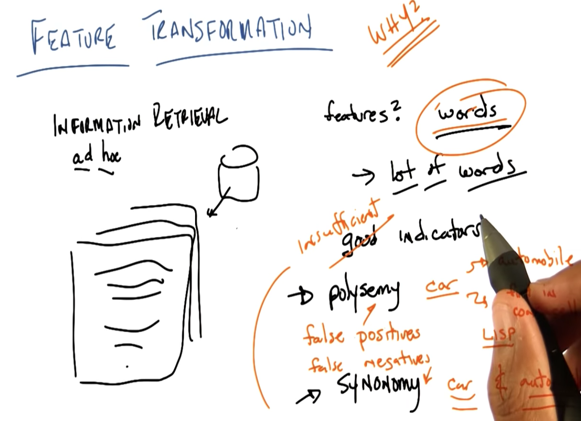 FEATURE TRANSFORMATION
WHY?
INFORMATION RETRIEVAL
ad hoc
features? words
→ lot of words
insufficient
good indicators
→ polysemy car
automobile
false positives
LISP
false negatives
→ SYNONOMY car &